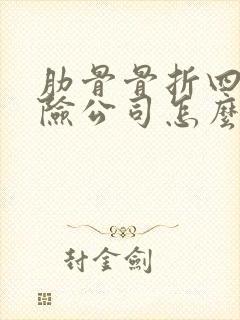 肋骨骨折四
险公司怎麼
封金劍